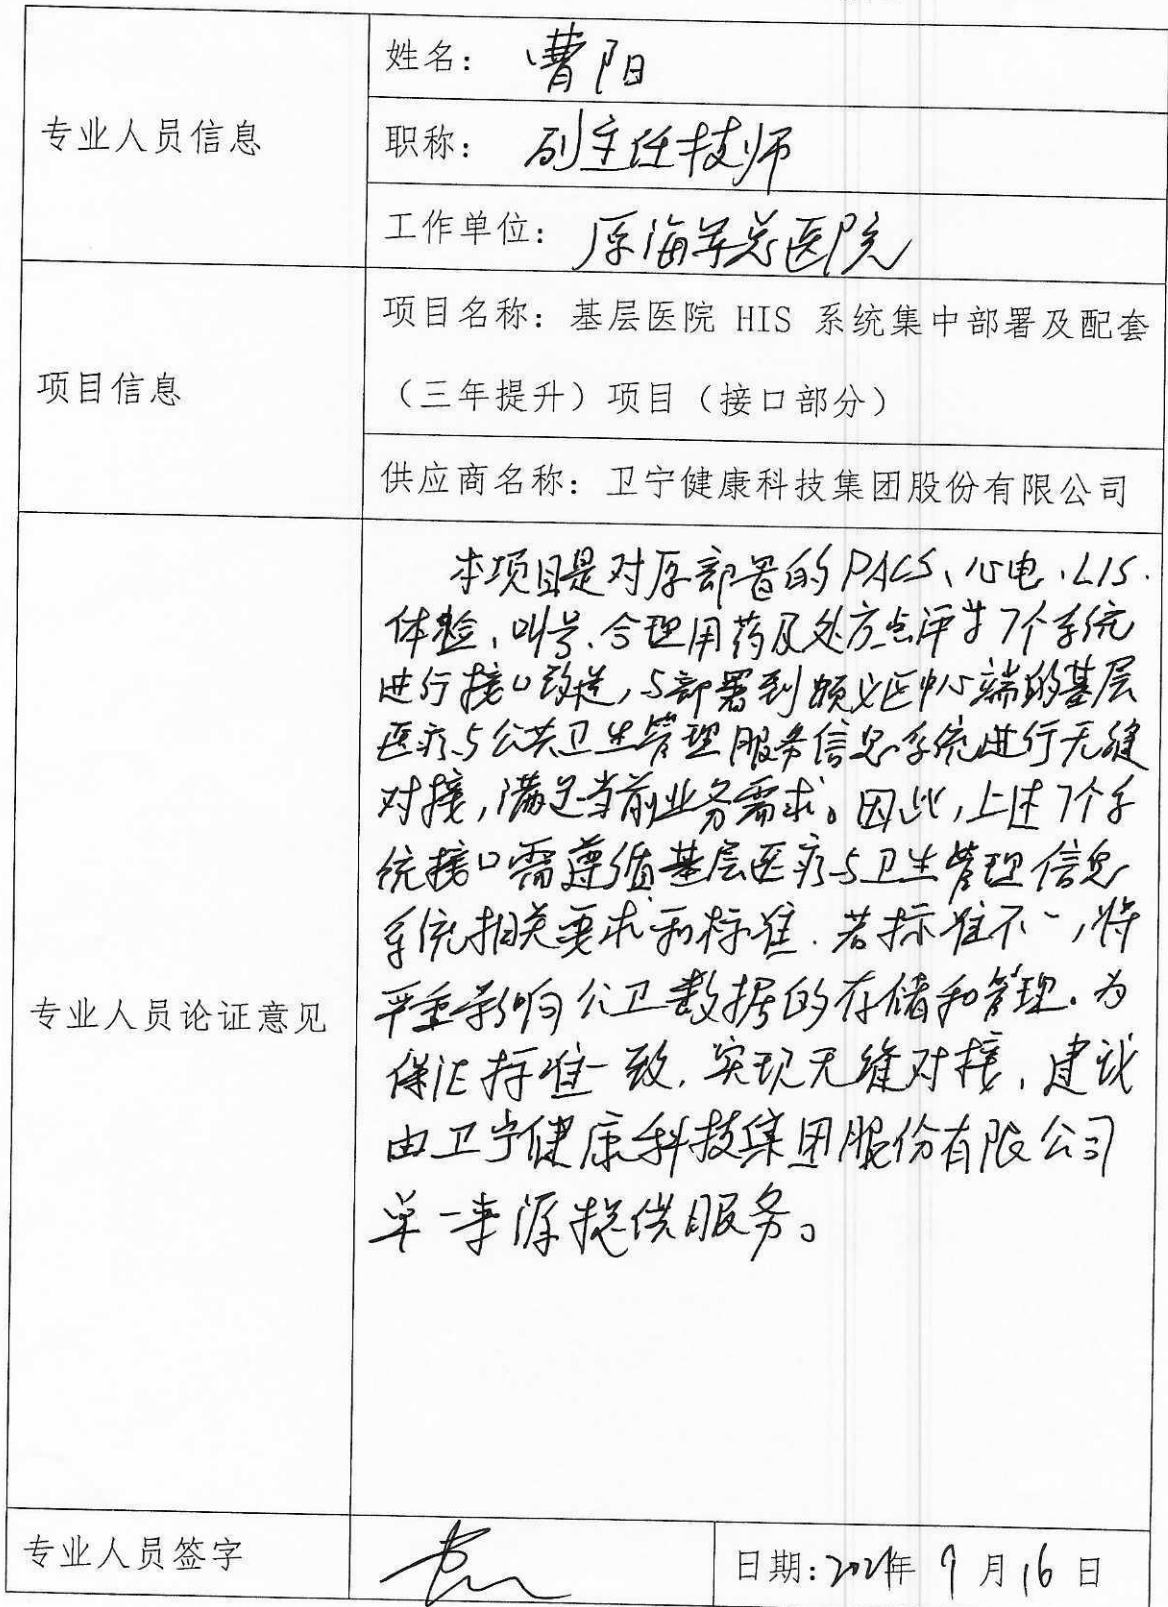 专业人员信息
姓名：曹阳
职称：副主任技师
工作单位：原海军总医院
项目信息
项目名称：基层医院 HIS 系统集中部署及配套
（三年提升）项目（接口部分）
供应商名称：卫宁健康科技集团股份有限公司
专业人员论证意见
本项目是对原部署的PACS、心电、LIS.
体验、叫号、合理用药及处方点评等7个系统
进行接口改造，与部署到顺义区中心端的基层
医疗与公共卫生管理服务信息系统进行无缝
对接，满足当前业务需求。因此，上述7个系
统接口需遵循基层医疗与卫生管理信息
系统相关要求和标准．若标准不一，将
严重影响公卫数据的存储和管理。为
保证标准一致．实现无缝对接，建议
由卫宁健康科技集团股份有限公司
单一来源提供服务。
专业人员签字
日期：年 月16日